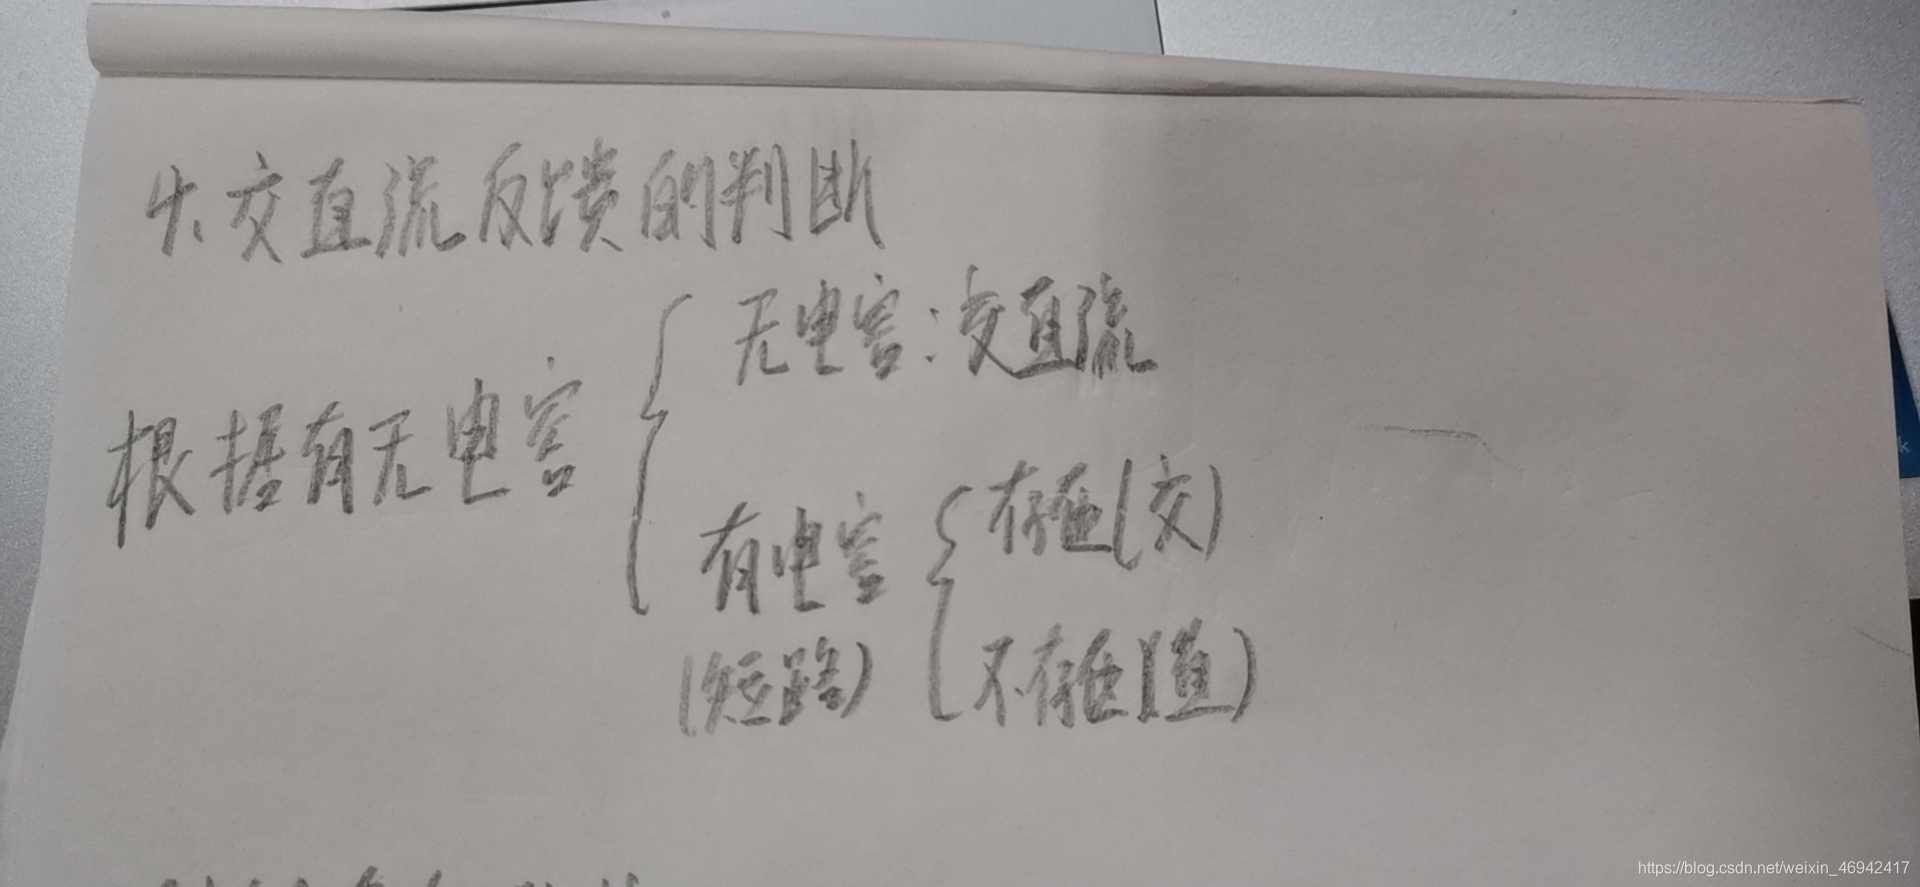 4、交直流反馈的判断
根据有无电容
无电容:交直流
有电容
(短路)
存在(交)
不存在(直)
https://blog.csdn.net/weixin_46942417